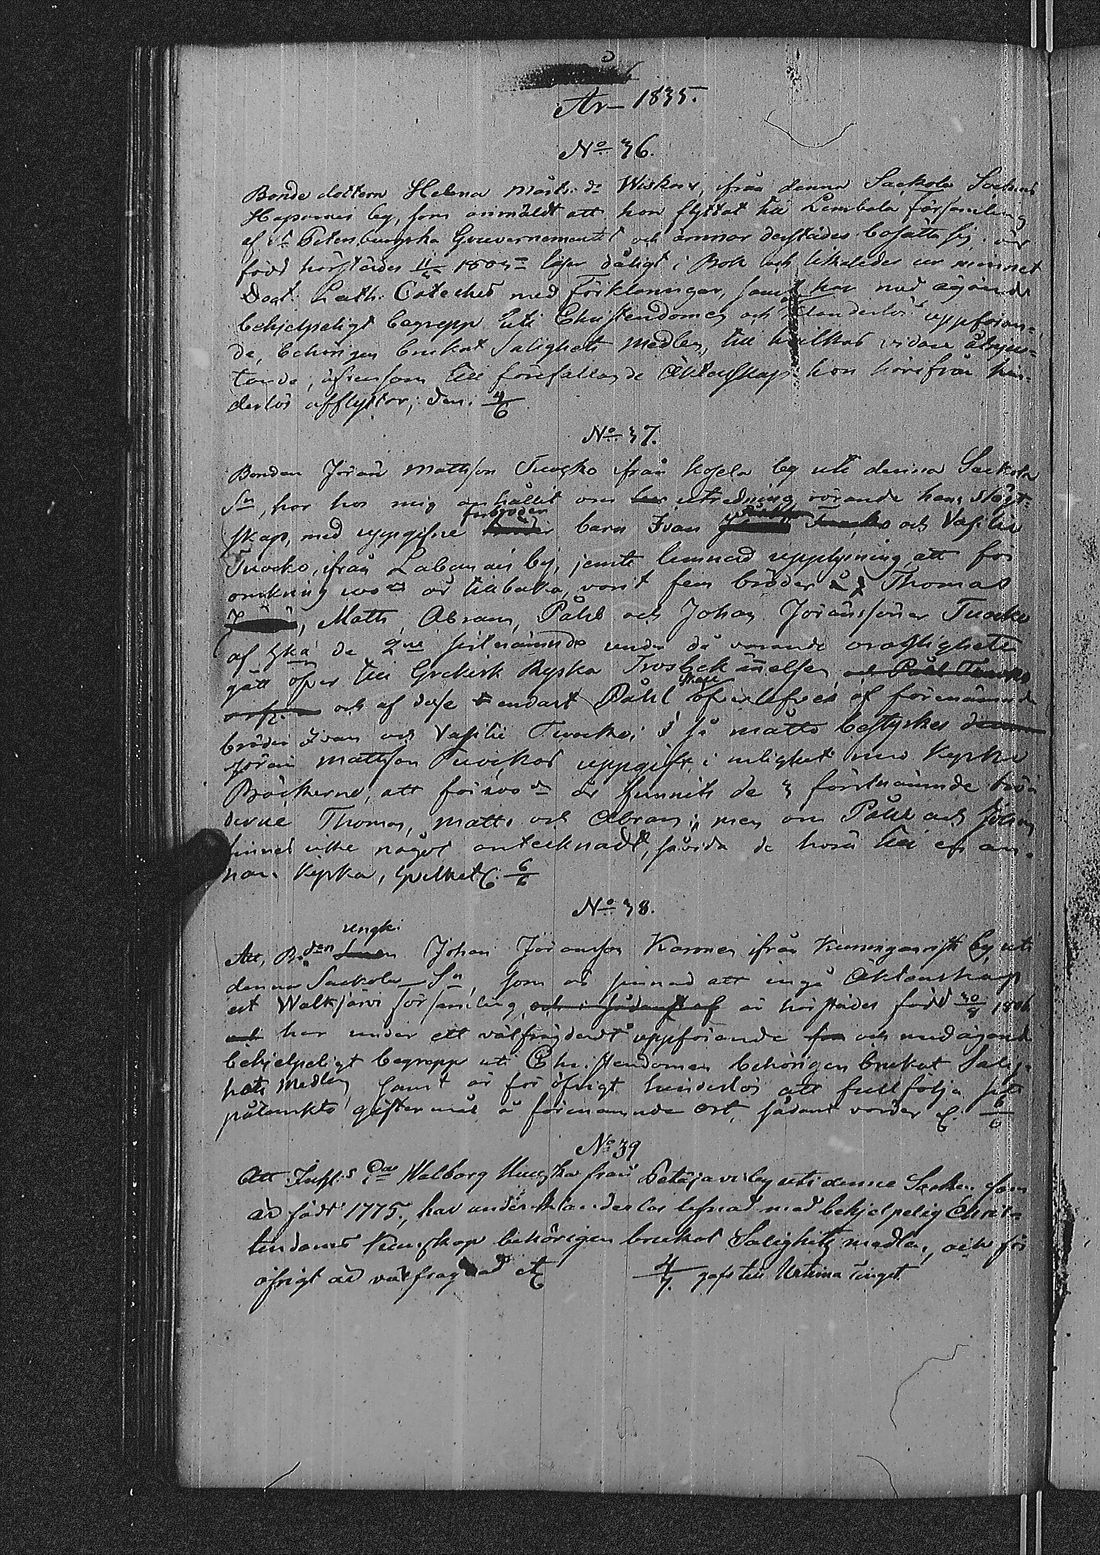 År 1835.
No 36.
Bonde dottern Helena Matts dr Wiskar, från denna Sackola Sockens
Haparais by, som anmäldt att hon flyttat till Lembala församling
af St Petersburgska Gouvernementet och ämnar derstädes bosätta sig, är
född härstädes 1805 läser dåligt i Bok och likaledes ur minnet
Doct. Luth. Cateches med förklaringar, samt har med ägande
behjelpeligt begrepp uti Christendomen och klanderlös uppföran-
de, behörigen brukat Salighets medlen, till hvilkas vidare åtnju-
tande, äfvensom till förefallande Äktenskap hon härifrån hin-
derlös afflyttar; den. 4/6
No 37.
Bonden Jöran Mattsson Tuocko från Kogela by uti denna Sackola
Sn, har hos mig anhållit om utredning rörande hans slägt-
skap, med uppgifne farbroder barn Ivan och Vasilie
Tuocko, ifrån Labanais by, jemte lemnad upplysning att för
omkring 100 de år tillbaka, varit fem bröder Thomas
Matts, Abram, Påhl och Johan Jöranssöner Tuocko
af hka de 2ne förstnämnde under då varande oroligheter
gått öfver till Grekisk Ryska Trosbekännelsen,
och af desse endast Påhl öfverlefver af förenämnde
bröder Ivan och Vasilie Tuocko; i så måtto bestyrkes
Jöran Mattsson Tuockos uppgift, i enlighet med Kyrko
Böckerne, att för 100 de år funnits de 3 förstnämnde brö-
derne Thomas, Matts och Abram; men om Påhl och Johan
finnes icke något antecknadt, såvida de höra till en an-
nan Kyrka, hvilket etc. 6/6
No 38.
ungk.
Att, Bonden Johan Jöransson Karmes ifrån Kuninganristi by uti
denna Sackola Sn, som är sinnad att ingå Äktenskap
uti Walkjärvi församling, är härstädes född 30/8 1806
har under ett välfrägdadt uppförande och med ägande
behjelpeligt begrepp uti Christendomen behörigen brukat Salig-
hets medlen, samt är för öfrigt hinderlös att fullfölja sitt
påtänkta giftermål å förenämnde ort, sådant varder etc. 6/6
No 39
Att Inhs Dr Walborg från Petäjärvi by uti denna Socken som
är född 1775, har under klanderlös lefnad med behjelpelig Christen-
tendoms Kunskap behörigen brukat Salighets medlen, och för
öfrigt är välfrägdad etc 4/7. gafs till Urtima Tinget.